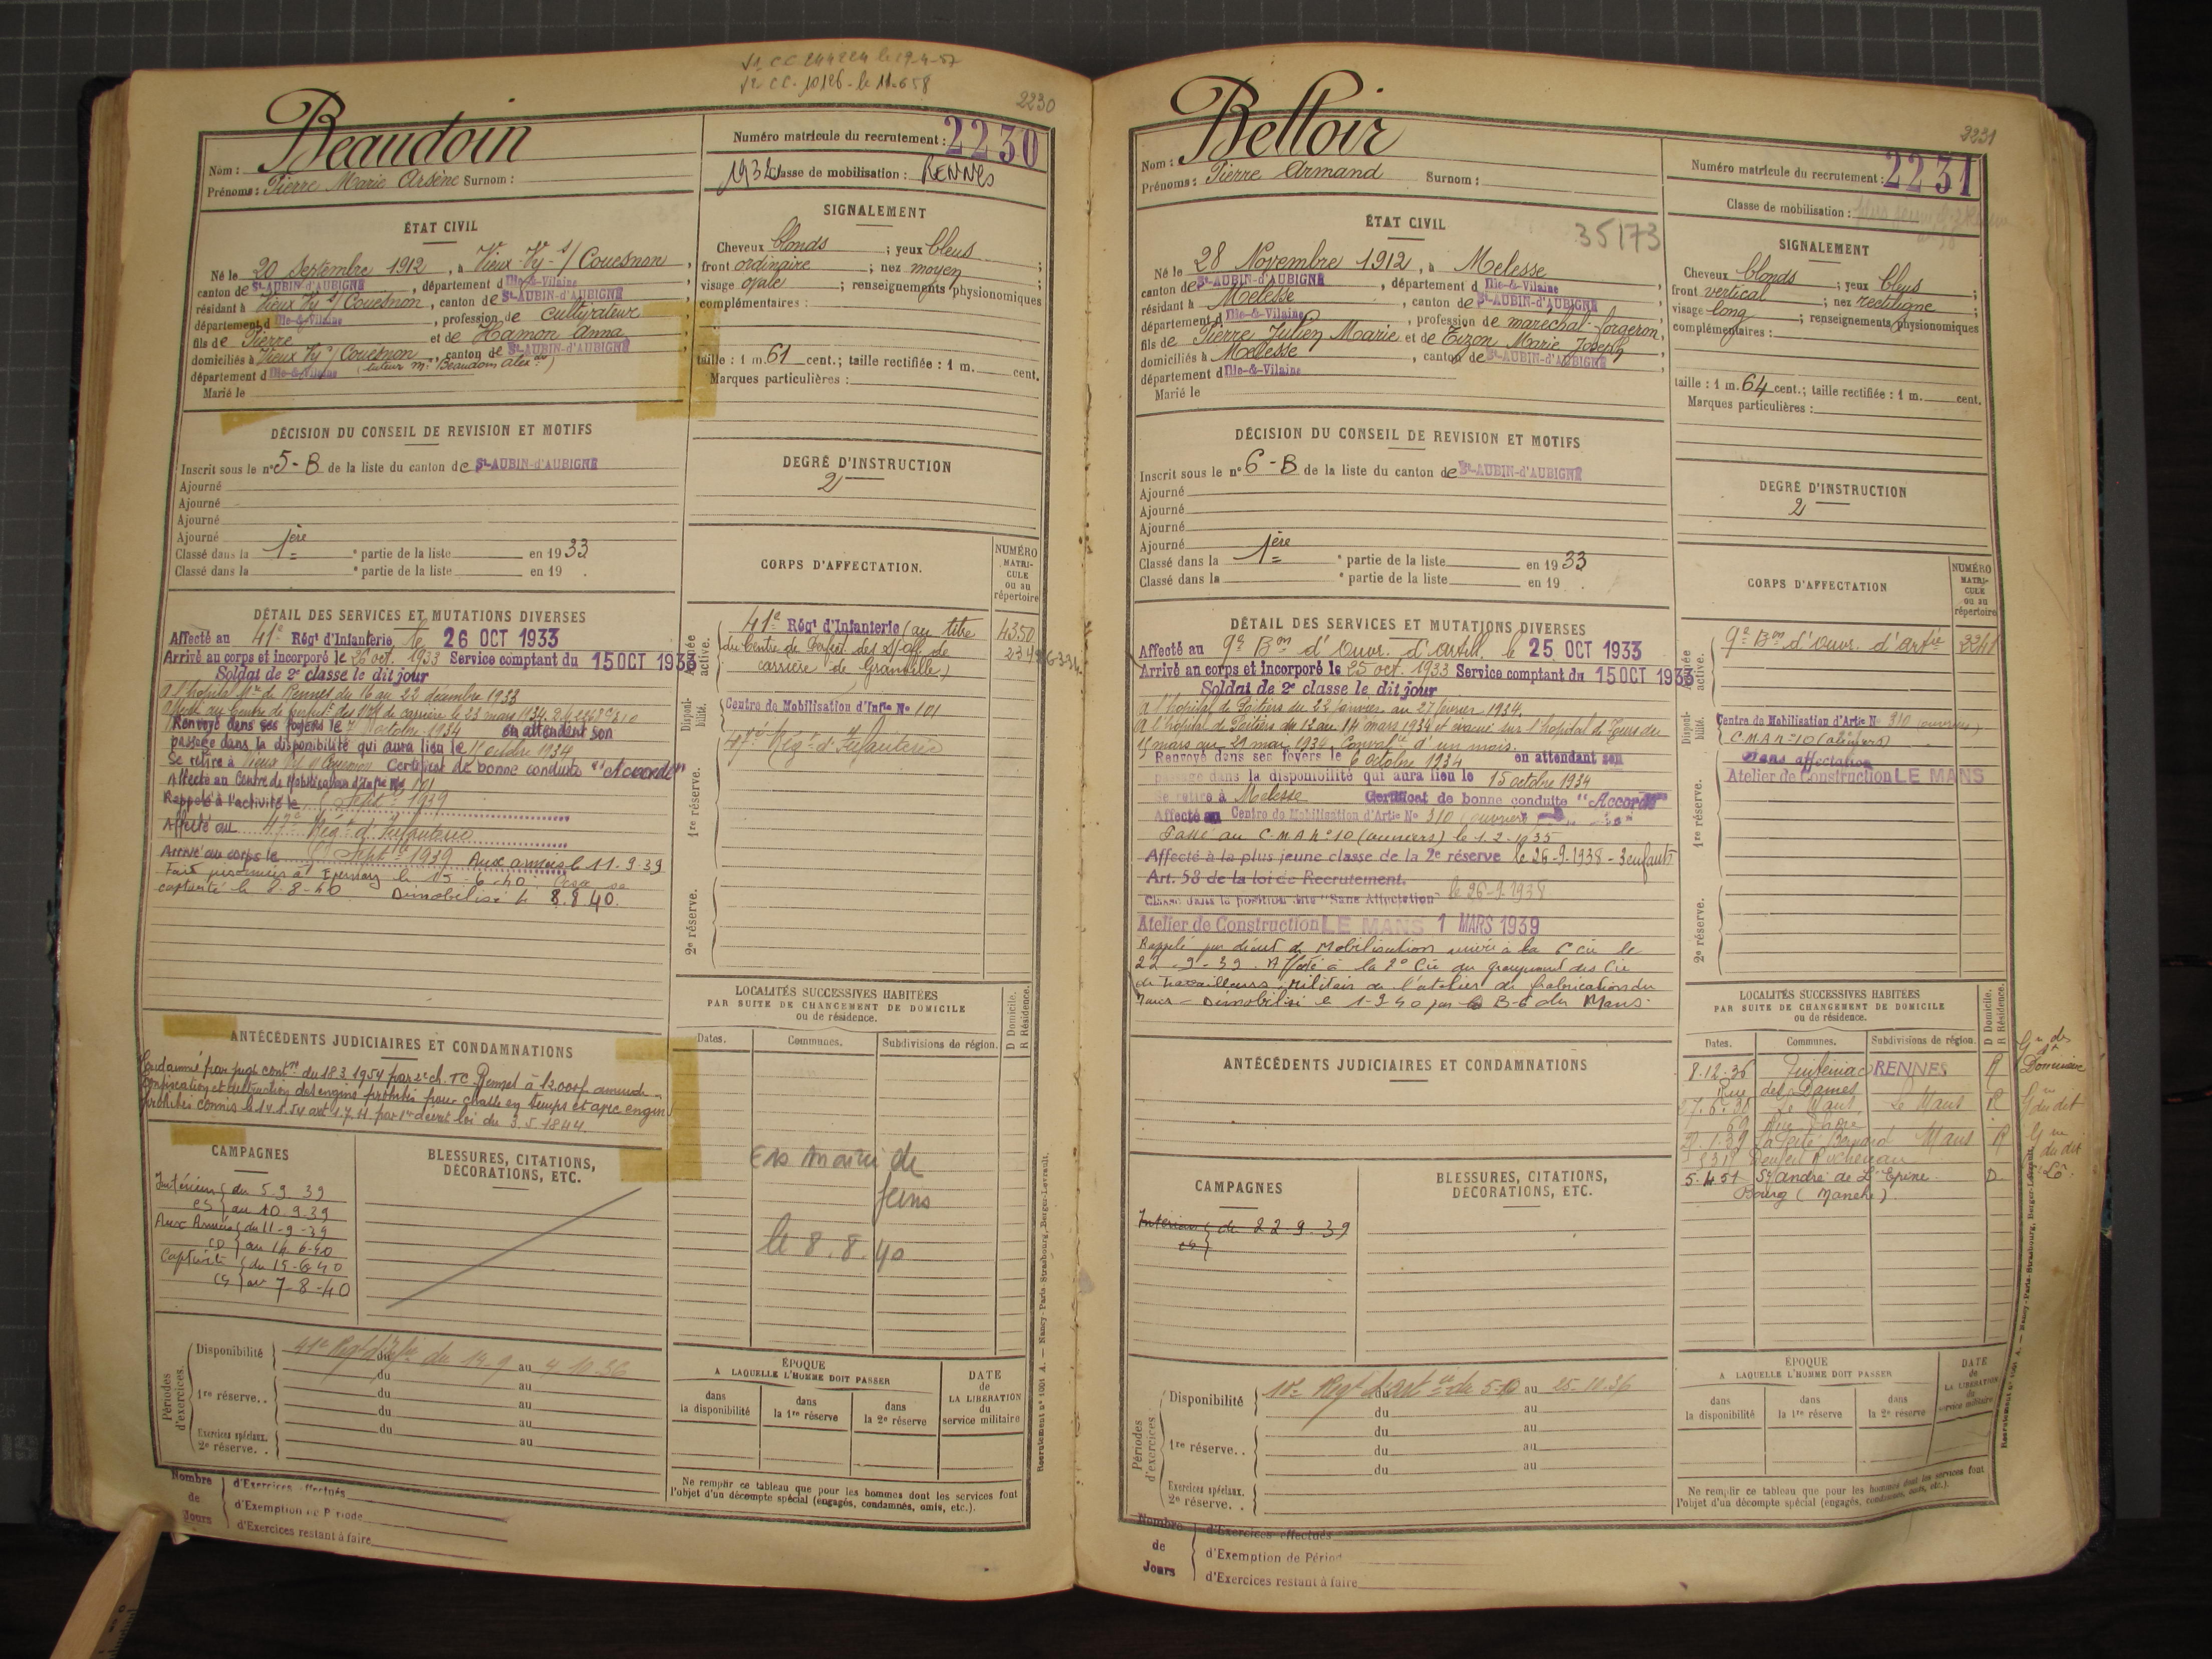 2230
Beaudoin
Nom :
Prénoms : Pierre Marie Arsène Surnom :
Numéro matricule du recrutement : 2230
1932 Classe de mobilisation : RENNES
ÉTAT CIVIL
Né le 20 Septembre 1912, à Vieux-Vy-s/Couesnon,
canton de St-AUBIN-d'AUBIGNÉ, département d Ille-&-Vilaine
résidant à Vieux Vy s/Couesnon, canton de St-AUBIN-d'AUBIGNÉ
département d Ille-&-Vilaine, profession de cultivateur
fils de Pierre et de Hamon Anna
domiciliés à Vieux Vy s/Couesnon, canton de St-AUBIN-d'AUBIGNÉ
département d Ille-&-Vilaine (tuteur Mr Beaudoin
Marié le
SIGNALEMENT
Cheveux blonds ; yeux bleus ;
front ordinaire ; nez moyen ;
visage ovale ; renseignements physionomiques
complémentaires :
taille : 1 m. 61 cent.; taille rectifiée : 1 m. cent.
Marques particulières :
DÉCISION DU CONSEIL DE REVISION ET MOTIFS
Inscrit sous le n° 5-B de la liste du canton de St-AUBIN-d'AUBIGNÉ
Ajourné
Ajourné
Ajourné
Ajourné
Classé dans la 1ère e partie de la liste en 1933
Classé dans la e partie de la liste en 19 .
DEGRÉ D'INSTRUCTION
2
DÉTAIL DES SERVICES ET MUTATIONS DIVERSES
Affecté au 41e Régt d'Infanterie, le 26 OCT 1933
Arrivé au corps et incorporé le 26 oct. 1933 Service comptant du 15 OCT 1933
Soldat de 2e classe le dit jour
A l'hopital Mre de Rennes du 16 au 22 décembre 1933
de carrière le 23 mars 1934
Renvoyé dans ses foyers le octobre 1934 en attendant son
passage dans la disponibilité qui aura lieu le octobre 1934
Se retire à Vieux Vy s/Couesnon Certificat de bonne conduite "Accordé"
Affecté au Centre de Mobilisation d'Infie No 101
Rappelé à l'activité le Septre 1939
Affecté au 47e Régt d'Infanterie
Arrivé au corps le Septre 1939 Aux armées le 11.9.39
Fait prisonnier à Epernay le 15-6-40
captivité le 8-8-40 Démobilisé le 8.8.40.
CORPS D'AFFECTATION.
NUMÉRO MATRICULE ou au répertoire
Armée active.
41e Régt d'Infanterie (au titre
du Centre de Perfect. des S/Off. de
carrière de Granville)
4350
Disponibilité.
Centre de Mobilisation d'Infie No 101
47e Régt d'Infanterie
1re réserve.
2e réserve.
ANTÉCÉDENTS JUDICIAIRES ET CONDAMNATIONS
Condamné par jugt contre du 18 3 1954 par 2e ch. TC Rennes à 12.000f. amende
confiscation et destruction des engins prohibés pour chasse en temps et avec engins
prohibés commis le 14.1.54 loi du 3.5.1844.
LOCALITÉS SUCCESSIVES HABITÉES
PAR SUITE DE CHANGEMENT DE DOMICILE
ou de résidence.
D Domicile. R Résidence.
Dates. Communes. Subdivisions de région.
mairie de
feins
le 8.8.40
CAMPAGNES
Intérieur du 5 9 39
CS au 10.9.39
Aux Armées du 11-9-39
CD au 14-6-40
Captivité du 15-6-40
CS au 7-8-40
BLESSURES, CITATIONS,
DÉCORATIONS, ETC.
Périodes d'exercices.
Disponibilité 41e Regt d'Infie du 14.9 au 4 10.36
du au
1re réserve. . du au
du au
Exercices spéciaux. 2e réserve. . du au
ÉPOQUE
A LAQUELLE L'HOMME DOIT PASSER
dans la disponibilité
dans la 1re réserve
dans la 2e réserve
DATE de LA LIBÉRATION du service militaire
Ne remplir ce tableau que pour les hommes dont les services font
l'objet d'un décompte spécial (engagés, condamnés, omis, etc.).
Nombre de Jours
d'Exercices effectués
d'Exemption de Période
d'Exercices restant à faire
Recrutement n° 1001 A. — Nancy-Paris-Strasbourg, Berger-Levrault.
2231
Belloir
Nom :
Prénoms : Pierre Armand Surnom :
Numéro matricule du recrutement : 2231
Classe de mobilisation :
ÉTAT CIVIL 35173
Né le 28 Novembre 1912, à Melesse
canton de St-AUBIN-d'AUBIGNÉ, département d Ille-&-Vilaine
résidant à Melesse, canton de St-AUBIN-d'AUBIGNÉ
département d Ille-&-Vilaine, profession de maréchal-forgeron,
fils de Pierre Julien Marie et de Tizon Marie Joseph
domiciliés à Melesse, canton de St-AUBIN-d'AUBIGNÉ
département d Ille-&-Vilaine
Marié le
SIGNALEMENT
Cheveux blonds ; yeux bleus ;
front vertical ; nez rectiligne ;
visage long ; renseignements physionomiques
complémentaires :
taille : 1 m. 64 cent.; taille rectifiée : 1 m. cent.
Marques particulières :
DÉCISION DU CONSEIL DE REVISION ET MOTIFS
Inscrit sous le n° 6-B de la liste du canton de St-AUBIN-d'AUBIGNÉ
Ajourné
Ajourné
Ajourné
Ajourné
Classé dans la 1ère e partie de la liste en 1933
Classé dans la e partie de la liste en 19 .
DEGRÉ D'INSTRUCTION
2
DÉTAIL DES SERVICES ET MUTATIONS DIVERSES
Affecté au 9e Bon d'Ouvr. d'artill. le 25 OCT 1933
Arrivé au corps et incorporé le 25 oct. 1933 Service comptant du 15 OCT 1933
Soldat de 2e classe le dit jour
A l'hopital de Poitiers du 22 janvier au 27 février 1934.
A l'hopital de Poitiers du 12 au 14 mars 1934 et évacué sur l'hopital de Tours du
15 mars au 29 mai 1934. d'un mois.
Renvoyé dans ses foyers le 6 octobre 1934 en attendant son
passage dans la disponibilité qui aura lieu le 15 octobre 1934
Se retire à Melesse Certificat de bonne conduite "Accordé"
Affecté au Centre de Mobilisation d'Artie No 310 (ouvriers)
Passé au C.M.A n°10 (ouvriers) le 1.2.1935
Affecté à la plus jeune classe de la 2e réserve le 26-9-1938 - 3 enfants
Art. 58 de la loi de Recrutement.
Classé dans la position dite "Sans Affectation" le 26-9-1938
Atelier de Construction LE MANS 1 MARS 1939
Rappelé par décret de Mobilisation arrivé à la Cie le
22-9-39. Affecté à la 2e Cie du groupement des Cie
de travailleurs militaires de l'atelier de fabrication du
Mans - Démobilisé le 1-9 40 par le B-6 du Mans.
CORPS D'AFFECTATION
NUMÉRO MATRICULE ou au répertoire
Armée active.
9e Bon d'Ouvr. d'artie
Disponibilité.
Centre de Mobilisation d'Artie No 310 (ouvriers)
C.M.A n°10 (ouvriers)
Sans affectation
Atelier de Construction LE MANS
1re réserve.
2e réserve.
ANTÉCÉDENTS JUDICIAIRES ET CONDAMNATIONS
LOCALITÉS SUCCESSIVES HABITÉES
PAR SUITE DE CHANGEMENT DE DOMICILE
ou de résidence.
D Domicile. R Résidence.
Dates. Communes. Subdivisions de région.
8.12.36 Tinténiac RENNES R
Rue des Dames
7.6.38 Le Mans Le Mans R
La Ferté Bernard Mans R
Denfert Rochereau
5.4 51 St André de L'Epine. D.
Bourg (Manche)
CAMPAGNES
Intérieur du 22.9.39
CS
BLESSURES, CITATIONS,
DÉCORATIONS, ETC.
Périodes d'exercices.
Disponibilité 10e Regt d'artie du 5-10 au 25-10.36
du au
1re réserve. . du au
du au
Exercices spéciaux. 2e réserve. .
ÉPOQUE
A LAQUELLE L'HOMME DOIT PASSER
dans la disponibilité
dans la 1re réserve
dans la 2e réserve
DATE de LA LIBÉRATION du service militaire
Ne remplir ce tableau que pour les hommes dont les services font
l'objet d'un décompte spécial (engagés, condamnés, omis, etc.).
Nombre de Jours
d'Exercices effectués
d'Exemption de Périod
d'Exercices restant à faire
Recrutement n° 1001 A. — Nancy-Paris-Strasbourg, Berger-Levrault.